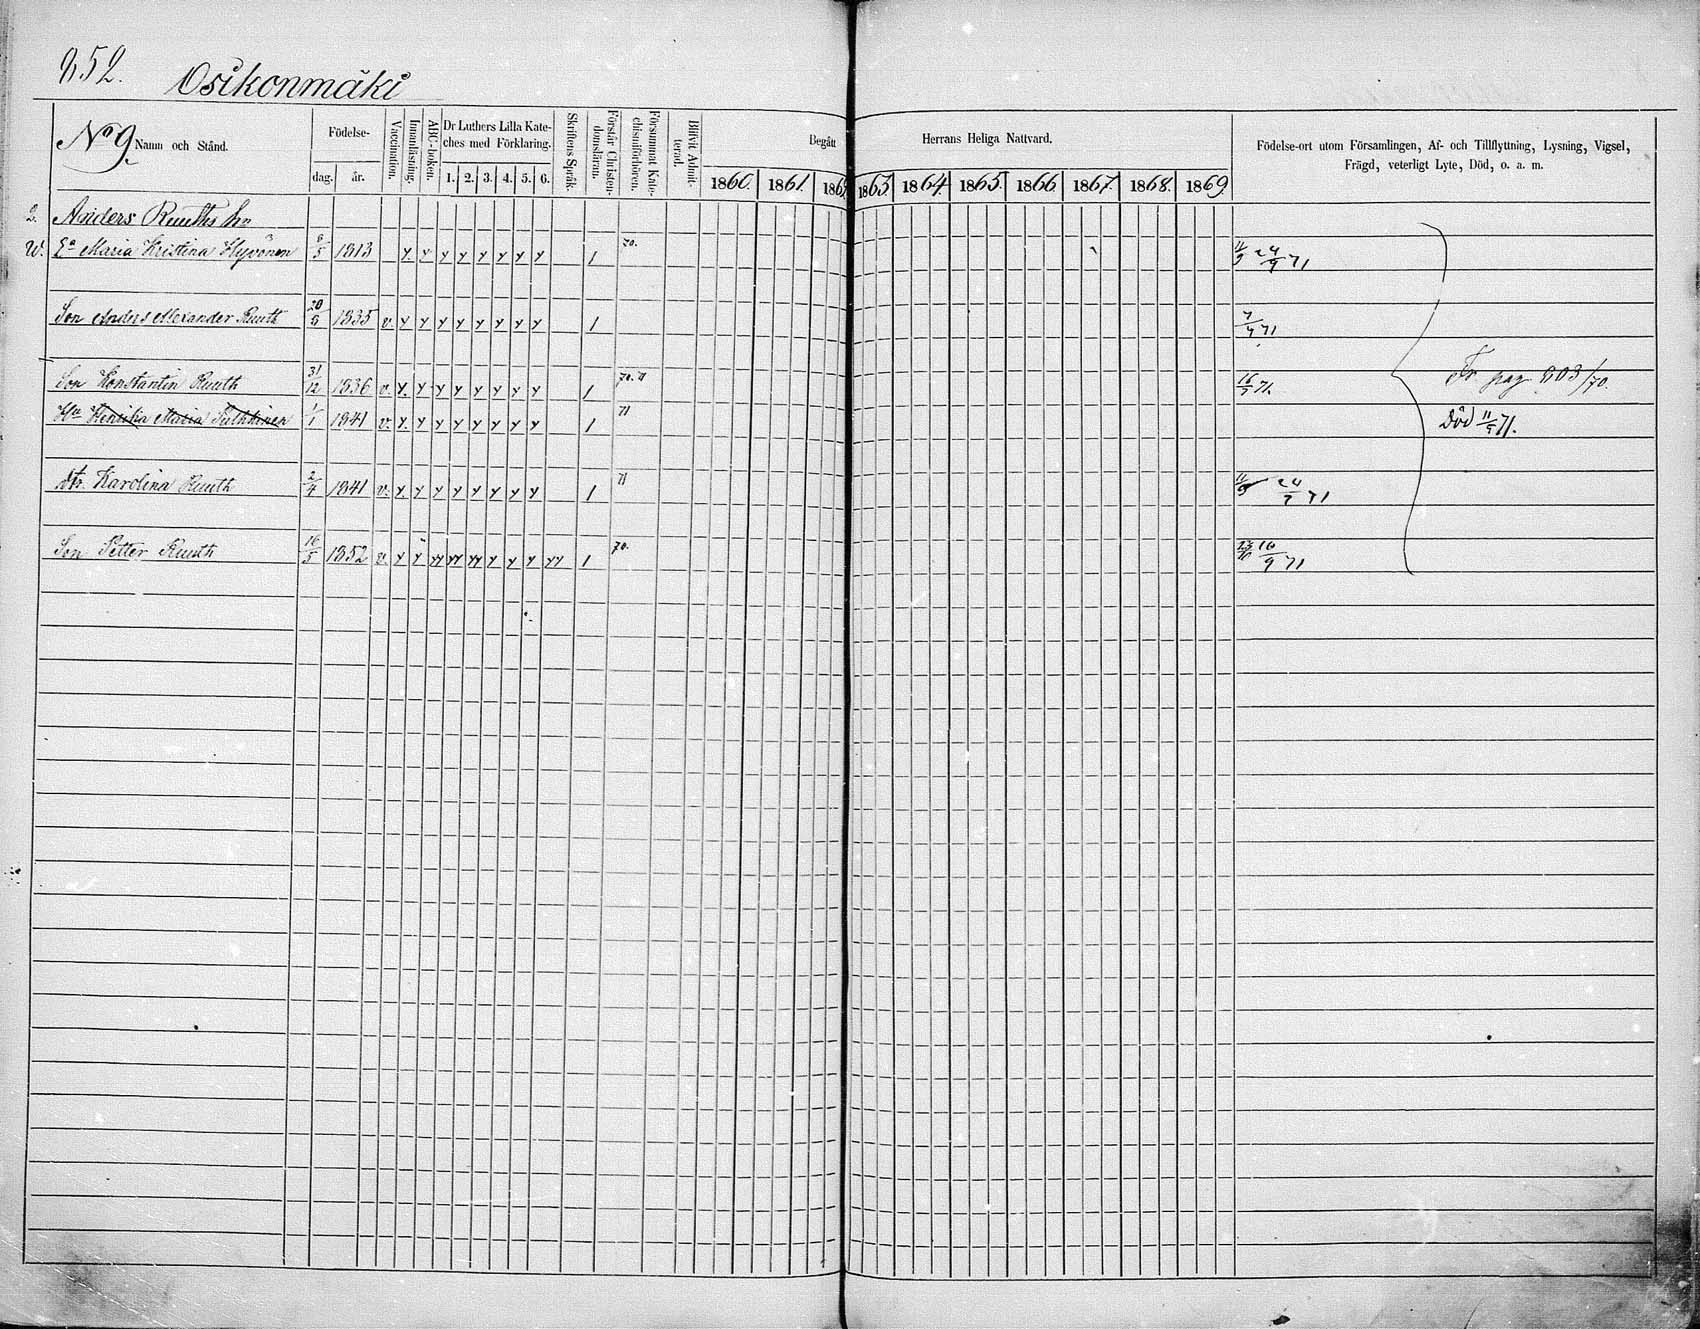 852. Osikonmäki
No 9. Namn och Stånd.
Födelse-
dag. år.
Vaccination.
Innanläsning.
ABC-boken.
Dr Luthers Lilla Kate-
ches med Förklaring.
1. 2. 3. 4. 5. 6.
Skriftens Språk.
Förstår Christen-
domsläran.
Försummat Kate-
chismiförhören.
Blifvit Admit-
terad.
Begått Herrans Heliga Nattvard.
1860. 1861. 1862 1863. 1864 1865. 1866 1867. 1868. 1869.
Födelse-ort utom Församlingen, Af- och Tillflyttning, Lysning, Vigsel,
Frägd, veterligt Lyte, Död, o. a. m.
2. Anders Ruuths hn
W. Ea Maria Kristina Hyvönen 8/5 1813 y y y y y y y y 1 70. 24/9 71
Son Anders Alexander Ruuth 20/5 1835 v. y y y y y y y y 1 7/4 71
Son Konstantin Ruuth 31/12 1836 v. y. y y y y y y y 1 70. 71 16/9 71. Fr pag 803/70.
Hu Henrika Maria Pulkkinen 1/1 1841 v. y. y y y y y y y 1 71 Död 11/5 71.
dtr. Karolina Ruuth 2/4 1841 v. y. y y y y y y y 1 71 24/7 71
Son Petter Ruuth 16/5 1852 v. y y yy yy yy y y y yy 1 70. 16/9 71